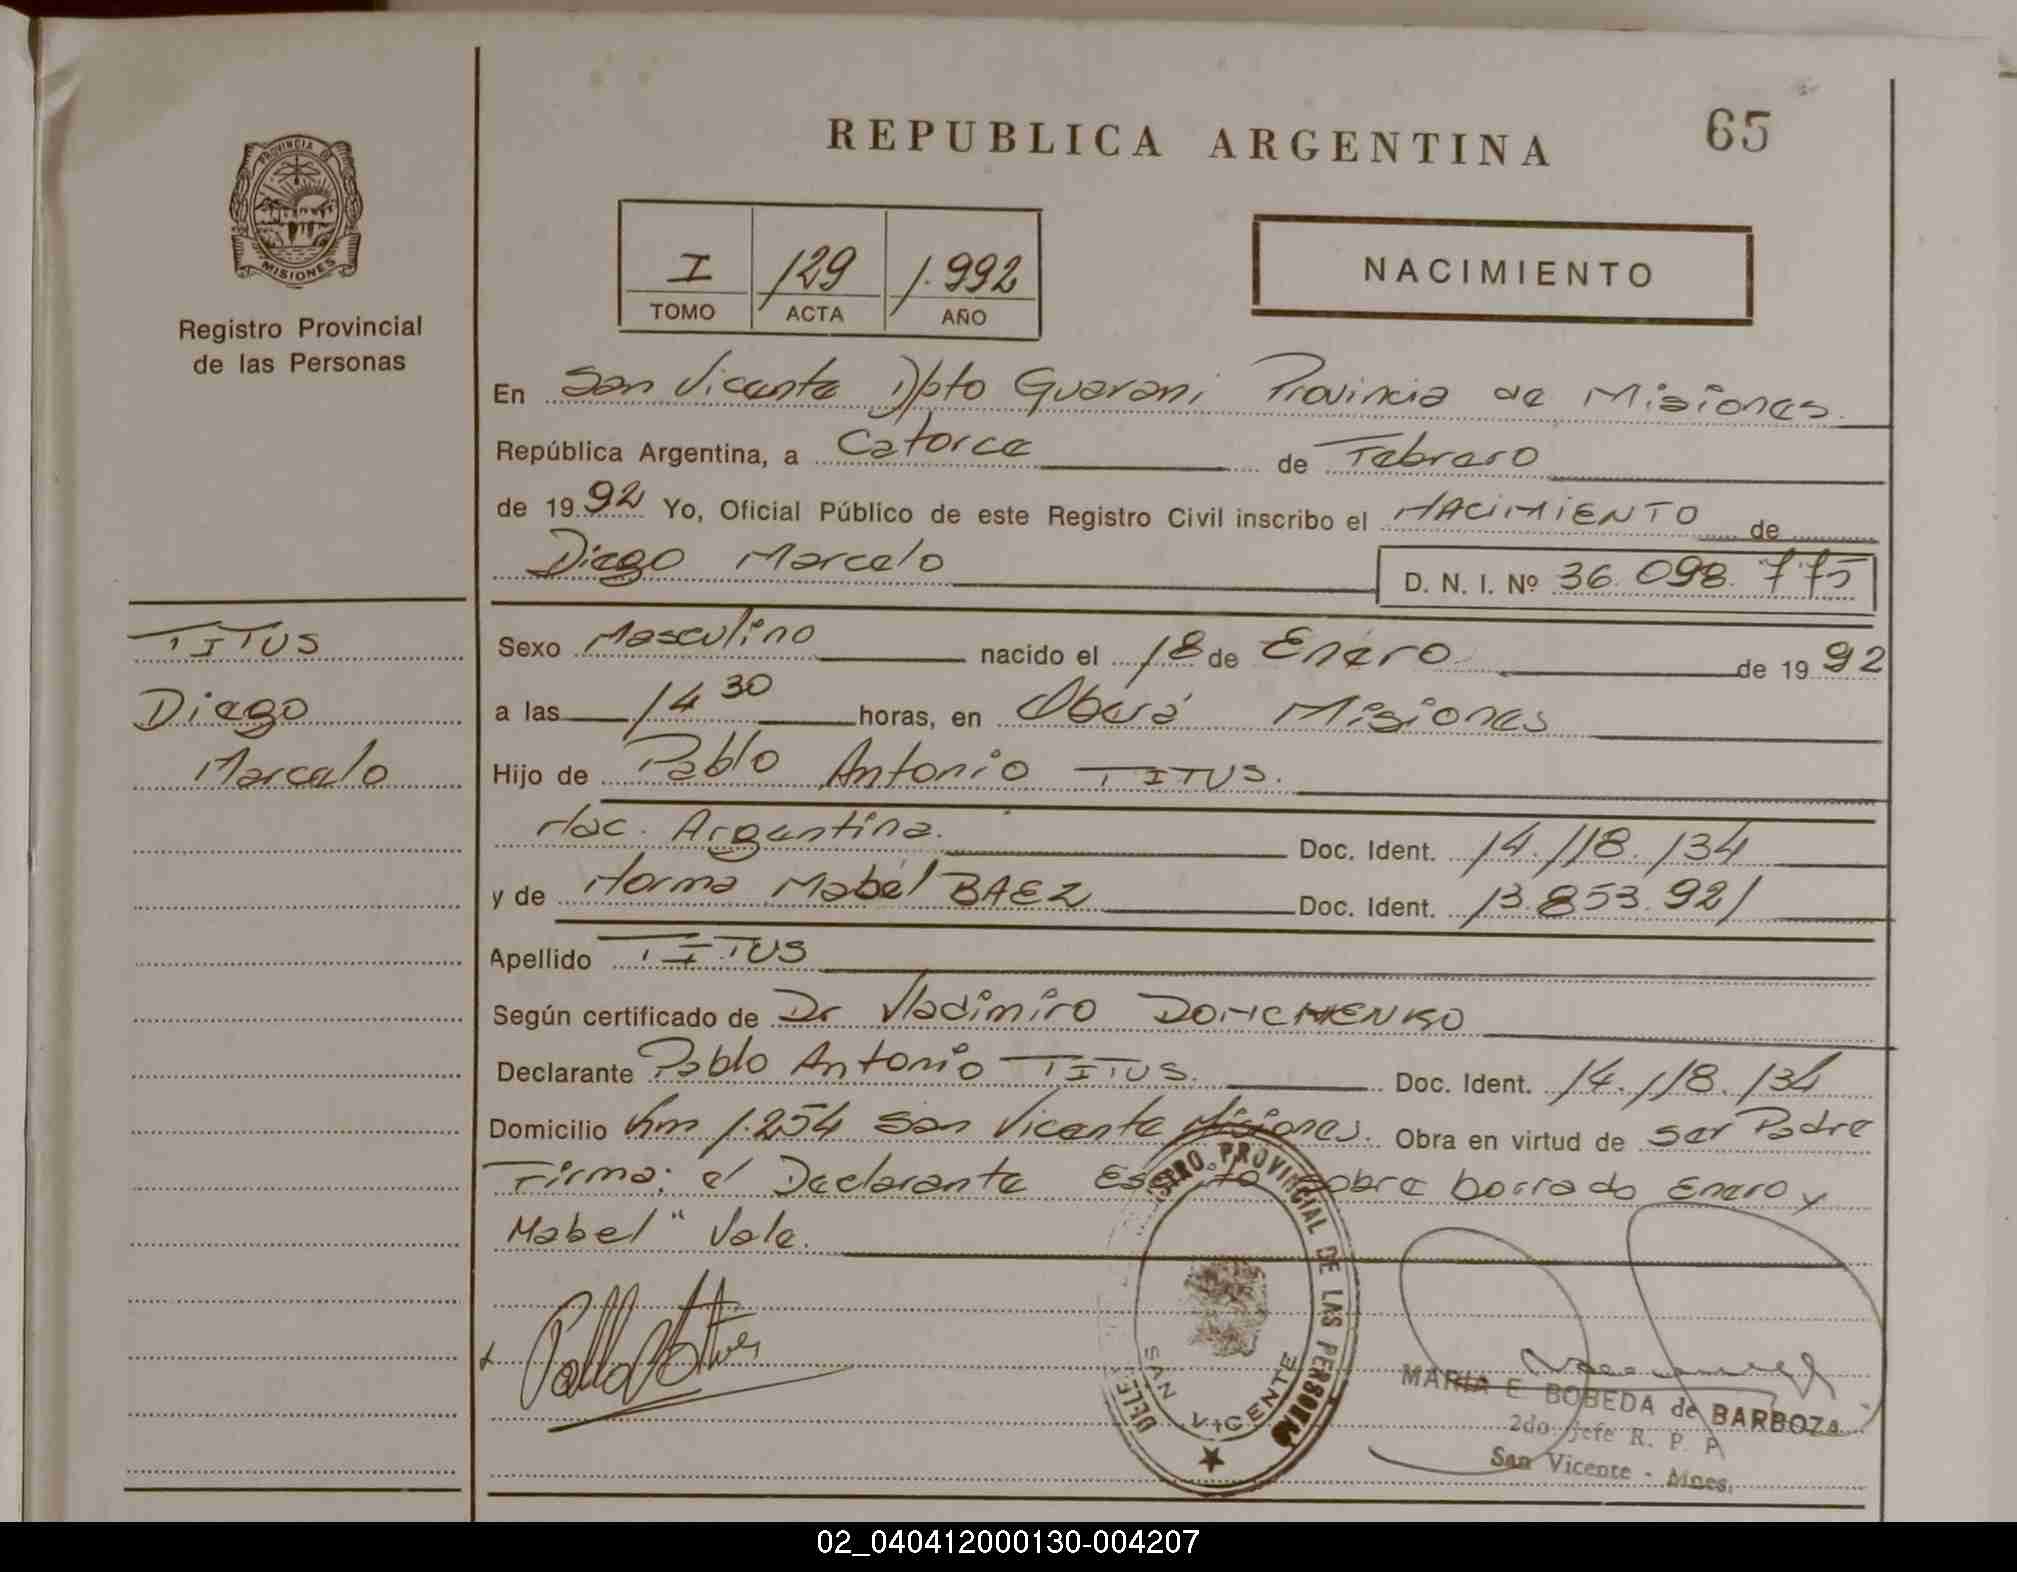 REPUBLICA ARGENTINA
65
PROVINCIA DE
MISIONES
Registro Provincial
de las Personas
I 129 1.992
TOMO ACTA AÑO
NACIMIENTO
En San Vicente Dpto Guarani Provincia de Misiones.
República Argentina, a Catorce de Febrero
de 1992 Yo, Oficial Público de este Registro Civil inscribo el NACIMIENTO de
Diego Marcelo D. N. I. Nº 36.098.775
TITUS
Diego
Marcelo
Sexo Masculino nacido el 18 de Enero de 1992
a las 14 30 horas, en Oberá Misiones
Hijo de Pablo Antonio TITUS.
Nac. Argentina. Doc. Ident. 14.118.134
y de Norma Mabel BAEZ Doc. Ident. 13.853.921
Apellido TITUS
Según certificado de Dr Vladimiro DONCHENKO
Declarante Pablo Antonio TITUS. Doc. Ident. 14.118.134
Domicilio Km 1.254 San Vicente Misiones. Obra en virtud de ser Padre
Firma: el Declarante Escrito sobre borrado Enero y
Mabel" Vale.
REGISTRO PROVINCIAL DE LAS PERSONAS
SAN VICENTE
MARIA E. BOBEDA de BARBOZA
2do Jefe R. P. P.
San Vicente - Mnes.
02_040412000130-004207